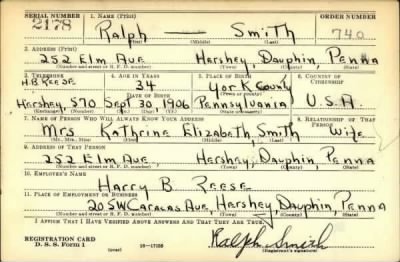 SERIAL NUMBER 1. NAME (Print) ORDER NUMBER
2178 Ralph — Smith 740
(First) (Middle) (Last)
2. ADDRESS (Print)
252 Elm Ave Hershey, Dauphin, Penna
(Number and street or R. F. D. number) (Town) (County) (State)
3. TELEPHONE 4. AGE IN YEARS 5. PLACE OF BIRTH 6. COUNTRY OF CITIZENSHIP
H.B. Reese 34 York County
DATE OF BIRTH
Hershey, 570 Sept 30, 1906 Pennsylvania U.S.A.
(Exchange) (Number) (Mo.) (Day) (Yr.) (State or country)
7. NAME OF PERSON WHO WILL ALWAYS KNOW YOUR ADDRESS 8. RELATIONSHIP OF THAT PERSON
Mrs Kathrine Elizabeth Smith Wife
(Mr., Mrs., Miss) (First) (Middle) (Last)
9. ADDRESS OF THAT PERSON
252 Elm Ave, Hershey, Dauphin, Penna
(Number and street or R. F. D. number) (Town) (County) (State)
10. EMPLOYER'S NAME
Harry B. Reese
11. PLACE OF EMPLOYMENT OR BUSINESS
20 SW Caracas Ave, Hershey, Dauphin, Penna
(Number and street or R. F. D. number) (Town) (County) (State)
I AFFIRM THAT I HAVE VERIFIED ABOVE ANSWERS AND THAT THEY ARE TRUE.
REGISTRATION CARD
D. S. S. Form 1 (over) Ralph Smith